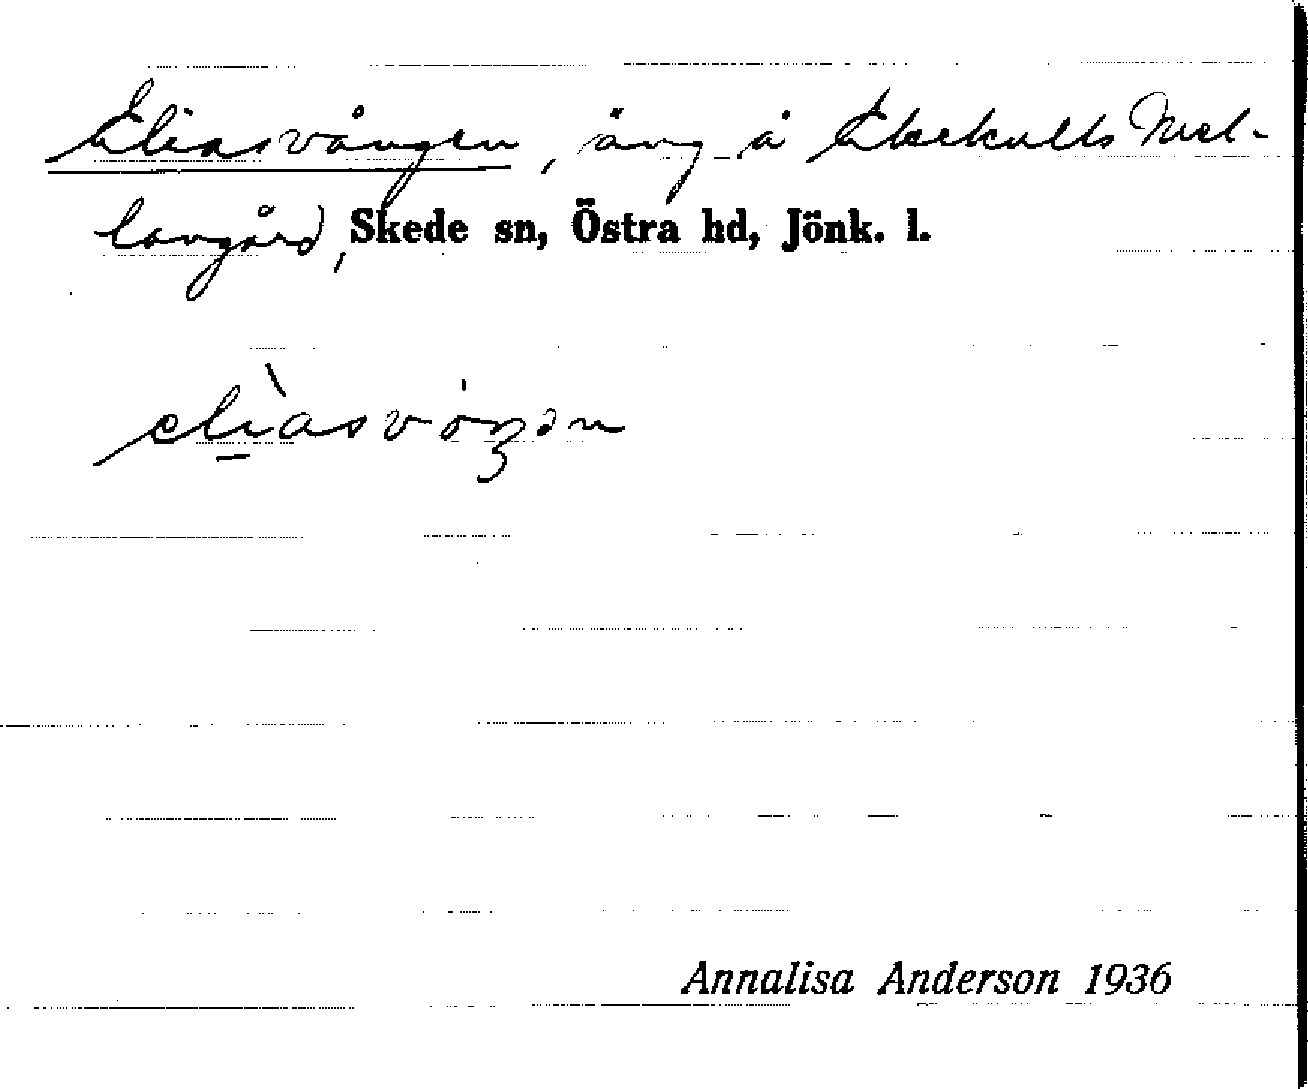 Eliasvången, äng å Ekekulls Mel-
langård, Skede sn, Östra hd, Jönk. l.
elìasvȯŋən
Annalisa Anderson 1936